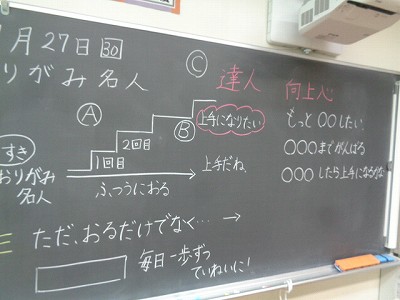 月27日 30
りがみ名人
Ⓒ
達人
向上心
Ⓐ
Ⓑ
上手になりたい
もっと〇〇したい。
〇〇〇までがんばる
〇〇〇したら上手になるかな
2回目
1回目
すき
おりがみ
名人
上手だね。
ふつうにおる
ただ、おるだけでなく…→
毎日一歩ずつ
ていねいに!